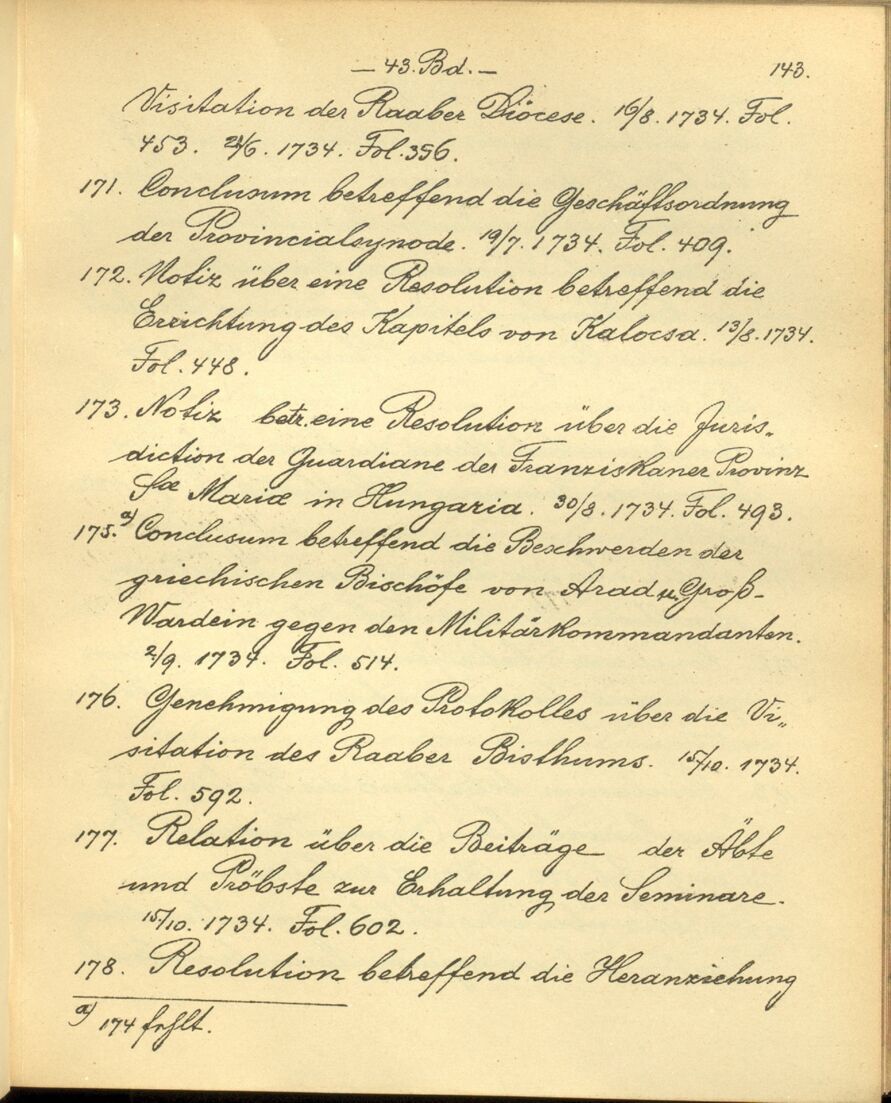 — 43. Bd. — 143.
Visitation der Raaber Diöcese. 16/8. 1734. Fol.
453. 24/6. 1734. Fol. 356.
171. Conclusum betreffend die Geschäftsordnung
der Provincialsynode. 19/7. 1734. Fol. 409.
172. Notiz über eine Resolution betreffend die
Errichtung des Kapitels von Kalocsa. 13/8. 1734.
Fol. 448.
173. Notiz betr. eine Resolution über die Juris„
diction der Guardiane der Franziskaner Provinz
Sæ Mariæ in Hungaria. 30/8. 1734. Fol. 493.
175. a) Conclusum betreffend die Beschwerden der
griechischen Bischöfe von Arad u. Groß-
Wardein gegen den Militärkommandanten.
2/9. 1734. Fol. 514.
176. Genehmigung des Protokolles über die Vi„
sitation des Raaber Bisthums. 15/10. 1734.
Fol. 592.
177. Relation über die Beiträge der Äbte
und Pröbste zur Erhaltung der Seminare.
15/10. 1734. Fol. 602.
178. Resolution betreffend die Heranziehung
a) 174 fehlt.